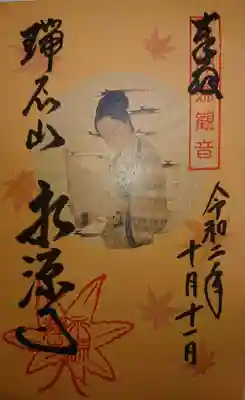 奉拝
観音
令和二年
十月十一日
瑞石山
永源寺